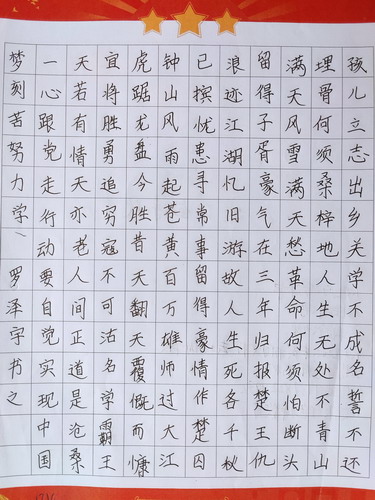 孩儿立志出乡关学不成名誓不还
埋骨何须桑梓地人生无处不青山
满天风雪满天愁革命何须怕断头
留得子胥豪气在三年归报楚王仇
浪迹江湖忆旧游故人生死各千秋
已摈忧患寻常事留得豪情作楚囚
钟山风雨起苍黄百万雄师过大江
虎踞龙盘今胜昔天翻天覆慨而慷
宜将胜勇追穷寇不可沽名学霸王
天若有情天亦老人间正道是沧桑
一心跟党走行动要自觉实现中国
梦刻苦努力学、罗泽宇书之